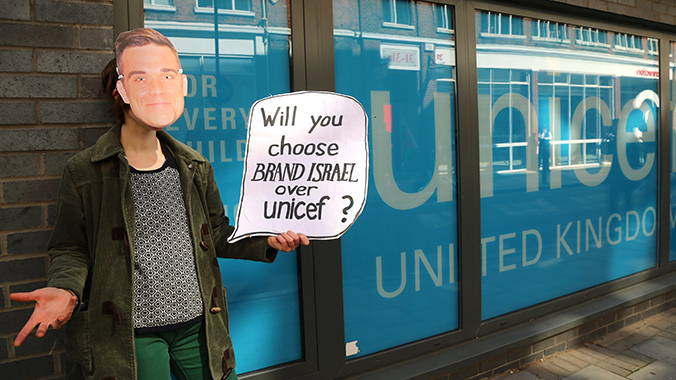 Will you
choose
BRAND ISRAEL
over
unicef ?
OR
EVERY
unicef
UNITED KINGDO